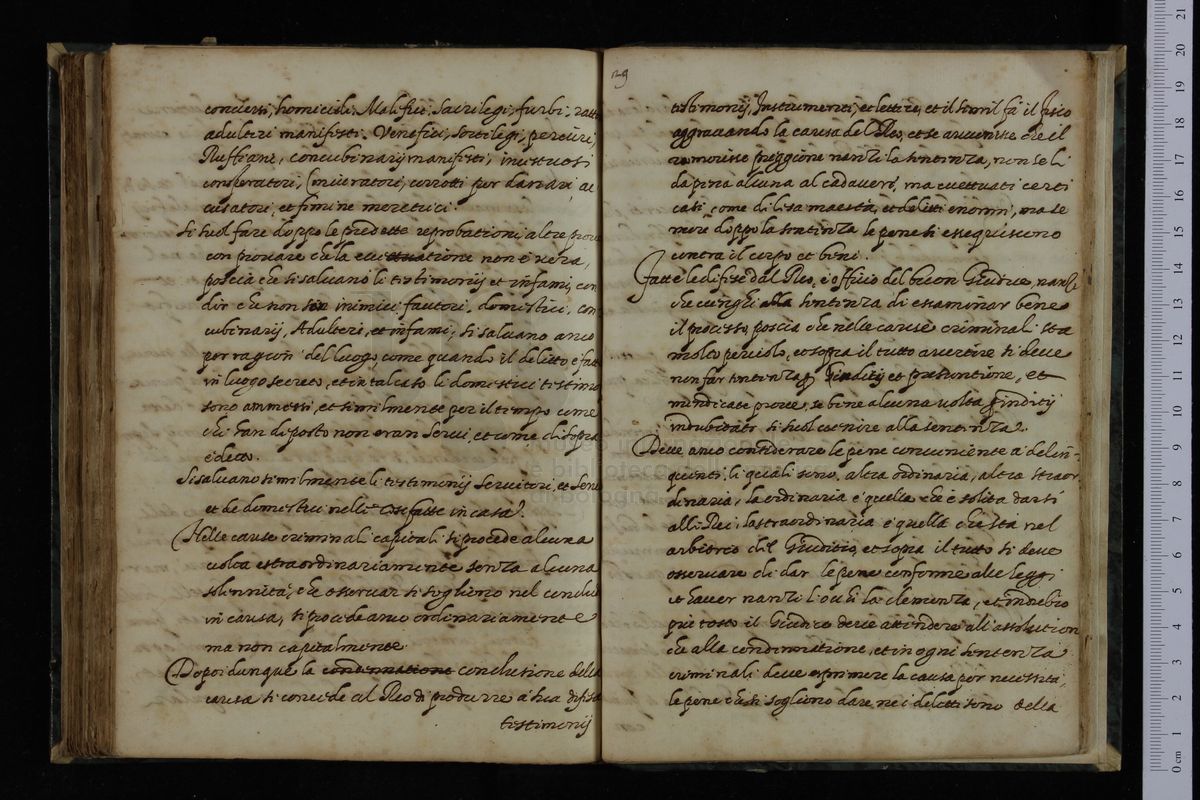 homicidi, Malefici, Sacrilegi, furbi,
adulteri manifesti, Venefici, sortilegi, periuri,
Ruffiani, concubinarij manifesti, incestuosi
corrotti per danari, ac
cusatori, et femine meretrici.
Si suol fare doppo le predette reprobationi, altre prove
con provare che la non è vera,
poscia che si salvano li testimonij et infami, con
dir che non sian inimici, fautori, domestici, con
cubinarij, Adulteri, et infami, si salvano anco
per ragion del luogo, come quando il delitto è fatto
in luogo secreto, et in tal caso li domestici testimo
sono ammessi, et similmente per il tempo come
che han disposto non eran servi, et come di sopra
è detto.
Si salvano similmente li testimonij servitori, et servi
et de domestici nelle cose fatte in casa.
Nelle cause criminali capitali si procede alcuna
volta estraordinariamente senza alcuna
solennità, che osservar si sogliono nel conclu
in causa, si procede anco ordinariamente
ma non capitalmente.
Dopoi dunque la condennatione conclusione della
causa si concede al Reo di produrre a sua difesa
testimonij
129
testimonij, Instrumenti, et lettere, et il simil fà il fisco
aggravando la causa del Reo, et se avvenisse che il
Reo morisse preggione nanzi la sentenza, non se li
dà pena alcuna al cadavero, ma eccettuati certi
casi come di lesa maestà, et delitti enormi, ma se
more doppo la sentenza le pene si essequiscono
contra il corpo et beni.
Fatte le difese dal Reo, è officio del buon Giudice, nanzi
che venghi alla sentenza di essaminar bene
il processo, poscia che nelle cause criminali sta
molto pericolo, et sopra il tutto avertire si deve
non far sentenza per Inditij et presuntione, et
mendicate prove, se bene alcuna volta per inditij
indubitati si suol venire alla sentenza.
Deve anco considerare le pene conveniente a delin-
quenti, li quali sono, altra ordinaria, altra straor
dinaria, la ordinaria è quella che è solita darsi
alli Rei, la straordinaria è quella che sta nel
arbitrio del Giuditio, et sopra il tutto si deve
osservare di dar le pene conforme alle leggi
et haver nanzi l'occhi la clemenza, et in dubio
più tosto il Giudice deve attendere all'assolution
che alla condennatione, et in ogni sentenza
criminali deve esprimere la causa per necessità,
le pene che si sogliono dare nei delitti sono della